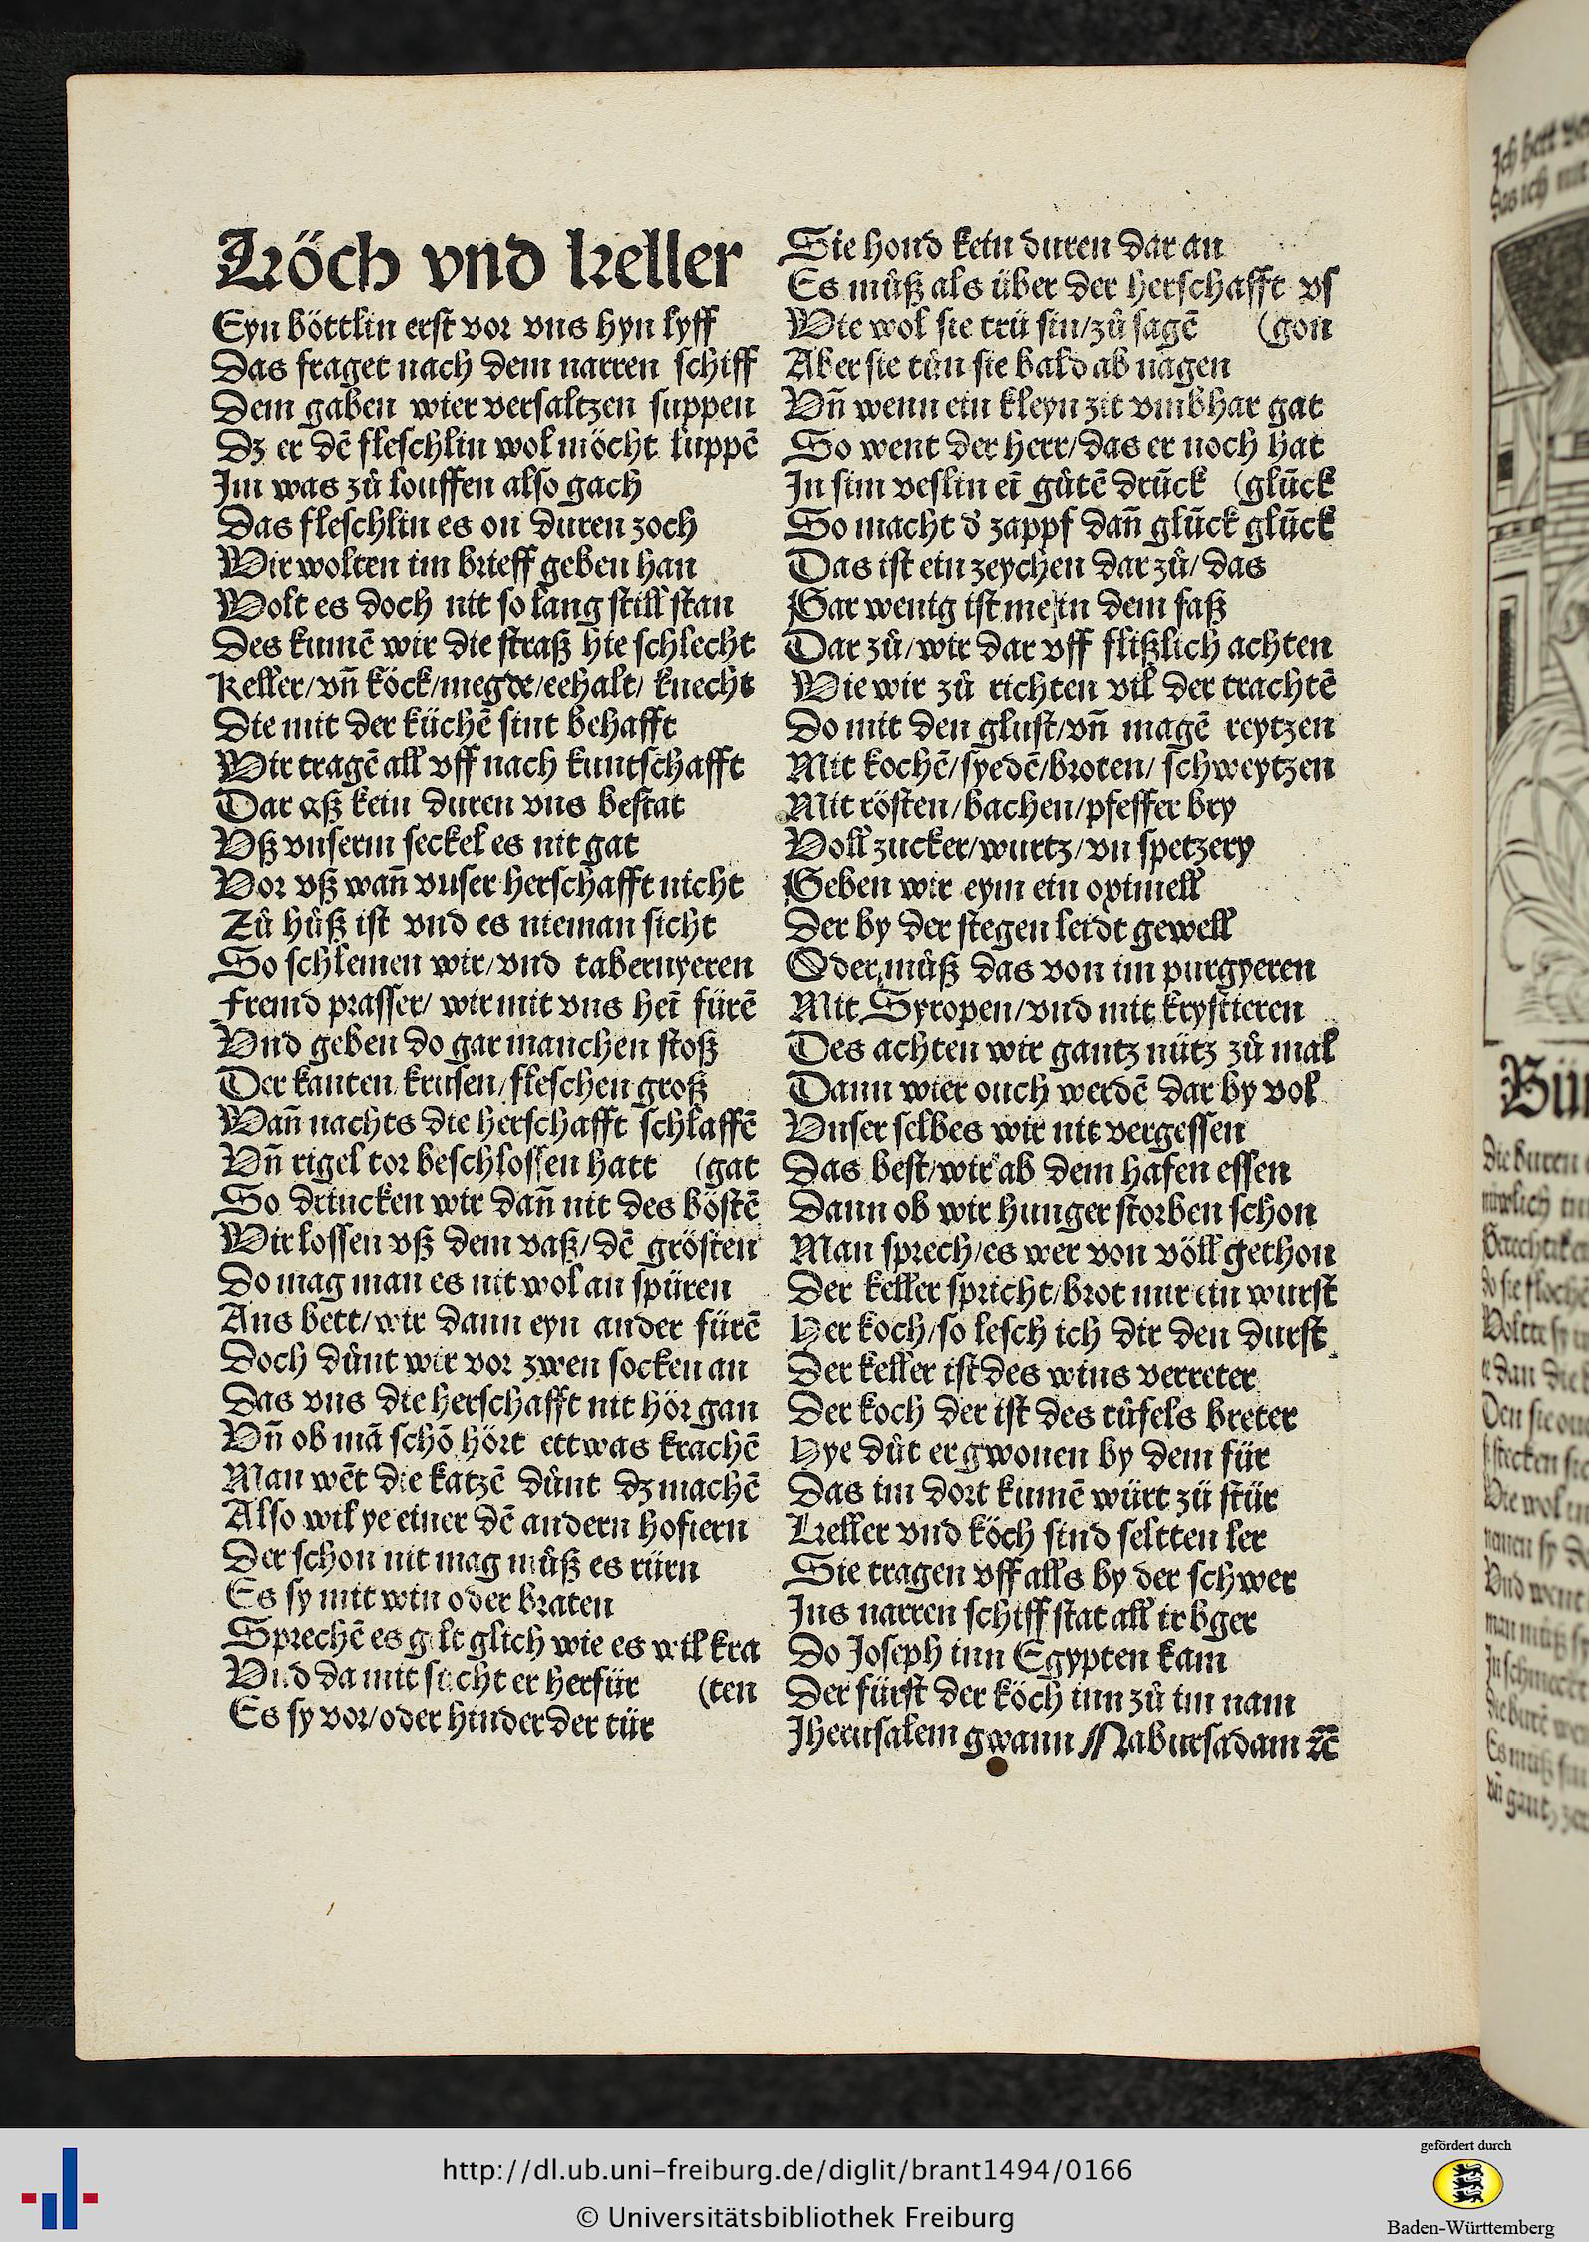 Köch vnd keller
Eyn böttlin erst vor vns hyn lyff
Das fraget nach dem narren schiff
Dem gaben wier versaltzen suppen
Dz er dē fleschlin wol möcht luppē
Im was zů louffen also gach
Das fleschlin es on duren zoch
Wir wolten im brieff geben han
Wolt es doch nit so lang still stan
Des kumē wir die straß hie schlecht
Keller/vn̄ köck/megde/eehalt/ knecht
Die mit der küchē sint behafft
Wir tragē all vff nach kuntschafft
Dar aß kein duren vns bestat
Vß vnserm seckel es nit gat
Vor vß wan̄ vnser herschafft nicht
Zů hůß ist vnd es nieman sicht
So schlemen wir/vnd tabernyeren
Fremd prasser/ wir mit vns heī fürē
Vnd geben do gar manchen stoß
Der kanten krusen/fleschen groß
Wan̄ nachts die herschafft schlaffē
Vn̄ rigel tor beschlossen hatt (gat
So drincken wir dan̄ nit des böstē
Wir lossen vß dem vaß/dē grösten
Do mag man es nit wol an spüren
Ans bett/wir dann eyn ander fürē
Doch důnt wir vor zwen socken an
Das vns die herschafft nit hör gan
Vn̄ ob mā schō hört ettwas krachē
Man wēt die katzē důnt dz machē
Also wil ye einer dē andern hofiern
Der schon nit mag můß es rürn
Es sy mit win oder braten
Sprechē es gilt glich wie es wil kra
Vnd da mit sücht er herfür (ten
Es sy vor/oder hinder der tür
Sie hond kein duren dar an
Es můß als über der herschafft vs
Wie wol sie trü sin/zů sagē (gon
Aber sie tůn sie bald ab nagen
Vn̄ wenn ein kleyn zit vmbhar gat
So went der herr/das er noch hat
In sim veslin eī gůtē drūck (glūck
So macht d̕ zappf dan̄ glūck glūck
Das ist ein zeychen dar zů/das
Gar wenig ist me in dem faß
Dar zů/wir dar vff flißlich achten
Wie wir zů richten vil der trachtē
Do mit den glust/vn̄ magē reytzen
Mit kochē/syedē/broten/ schweytzen
Mit rösten/bachen/pfeffer bry
Voll zucker/wurtz/vn spetzery
Geben wir eym ein oximell
Der by der stegen leidt gewell
Oder můß das von im purgyeren
Mit Syropen/vnd mit krystieren
Des achten wir gantz nütz zů mal
Dann wier ouch werdē dar by vol
Vnser selbes wir nit vergessen
Das best/wir ab dem hafen essen
Dann ob wir hunger storben schon
Man sprech/es wer von völl gethon
Der keller spricht/brot mir ein wurst
Her koch/so lesch ich dir den durst
Der keller ist des wins verreter
Der koch der ist des tůfels breter
Hye důt er gwonen by dem für
Das im dort kumē würt zü stür
Keller vnd köch sind seltten ler
Sie tragen vff alls by der schwer
Ins narren schiff stat all ir bger
Do Joseph inn Egypten kam
Der fürst der köch inn zů im nam
Jherusalem gwann Nabursadam ꝛc̄
http://dl.ub.uni-freiburg.de/diglit/brant1494/0166
© Universitätsbibliothek Freiburg
gefördert durch
Baden-Württemberg